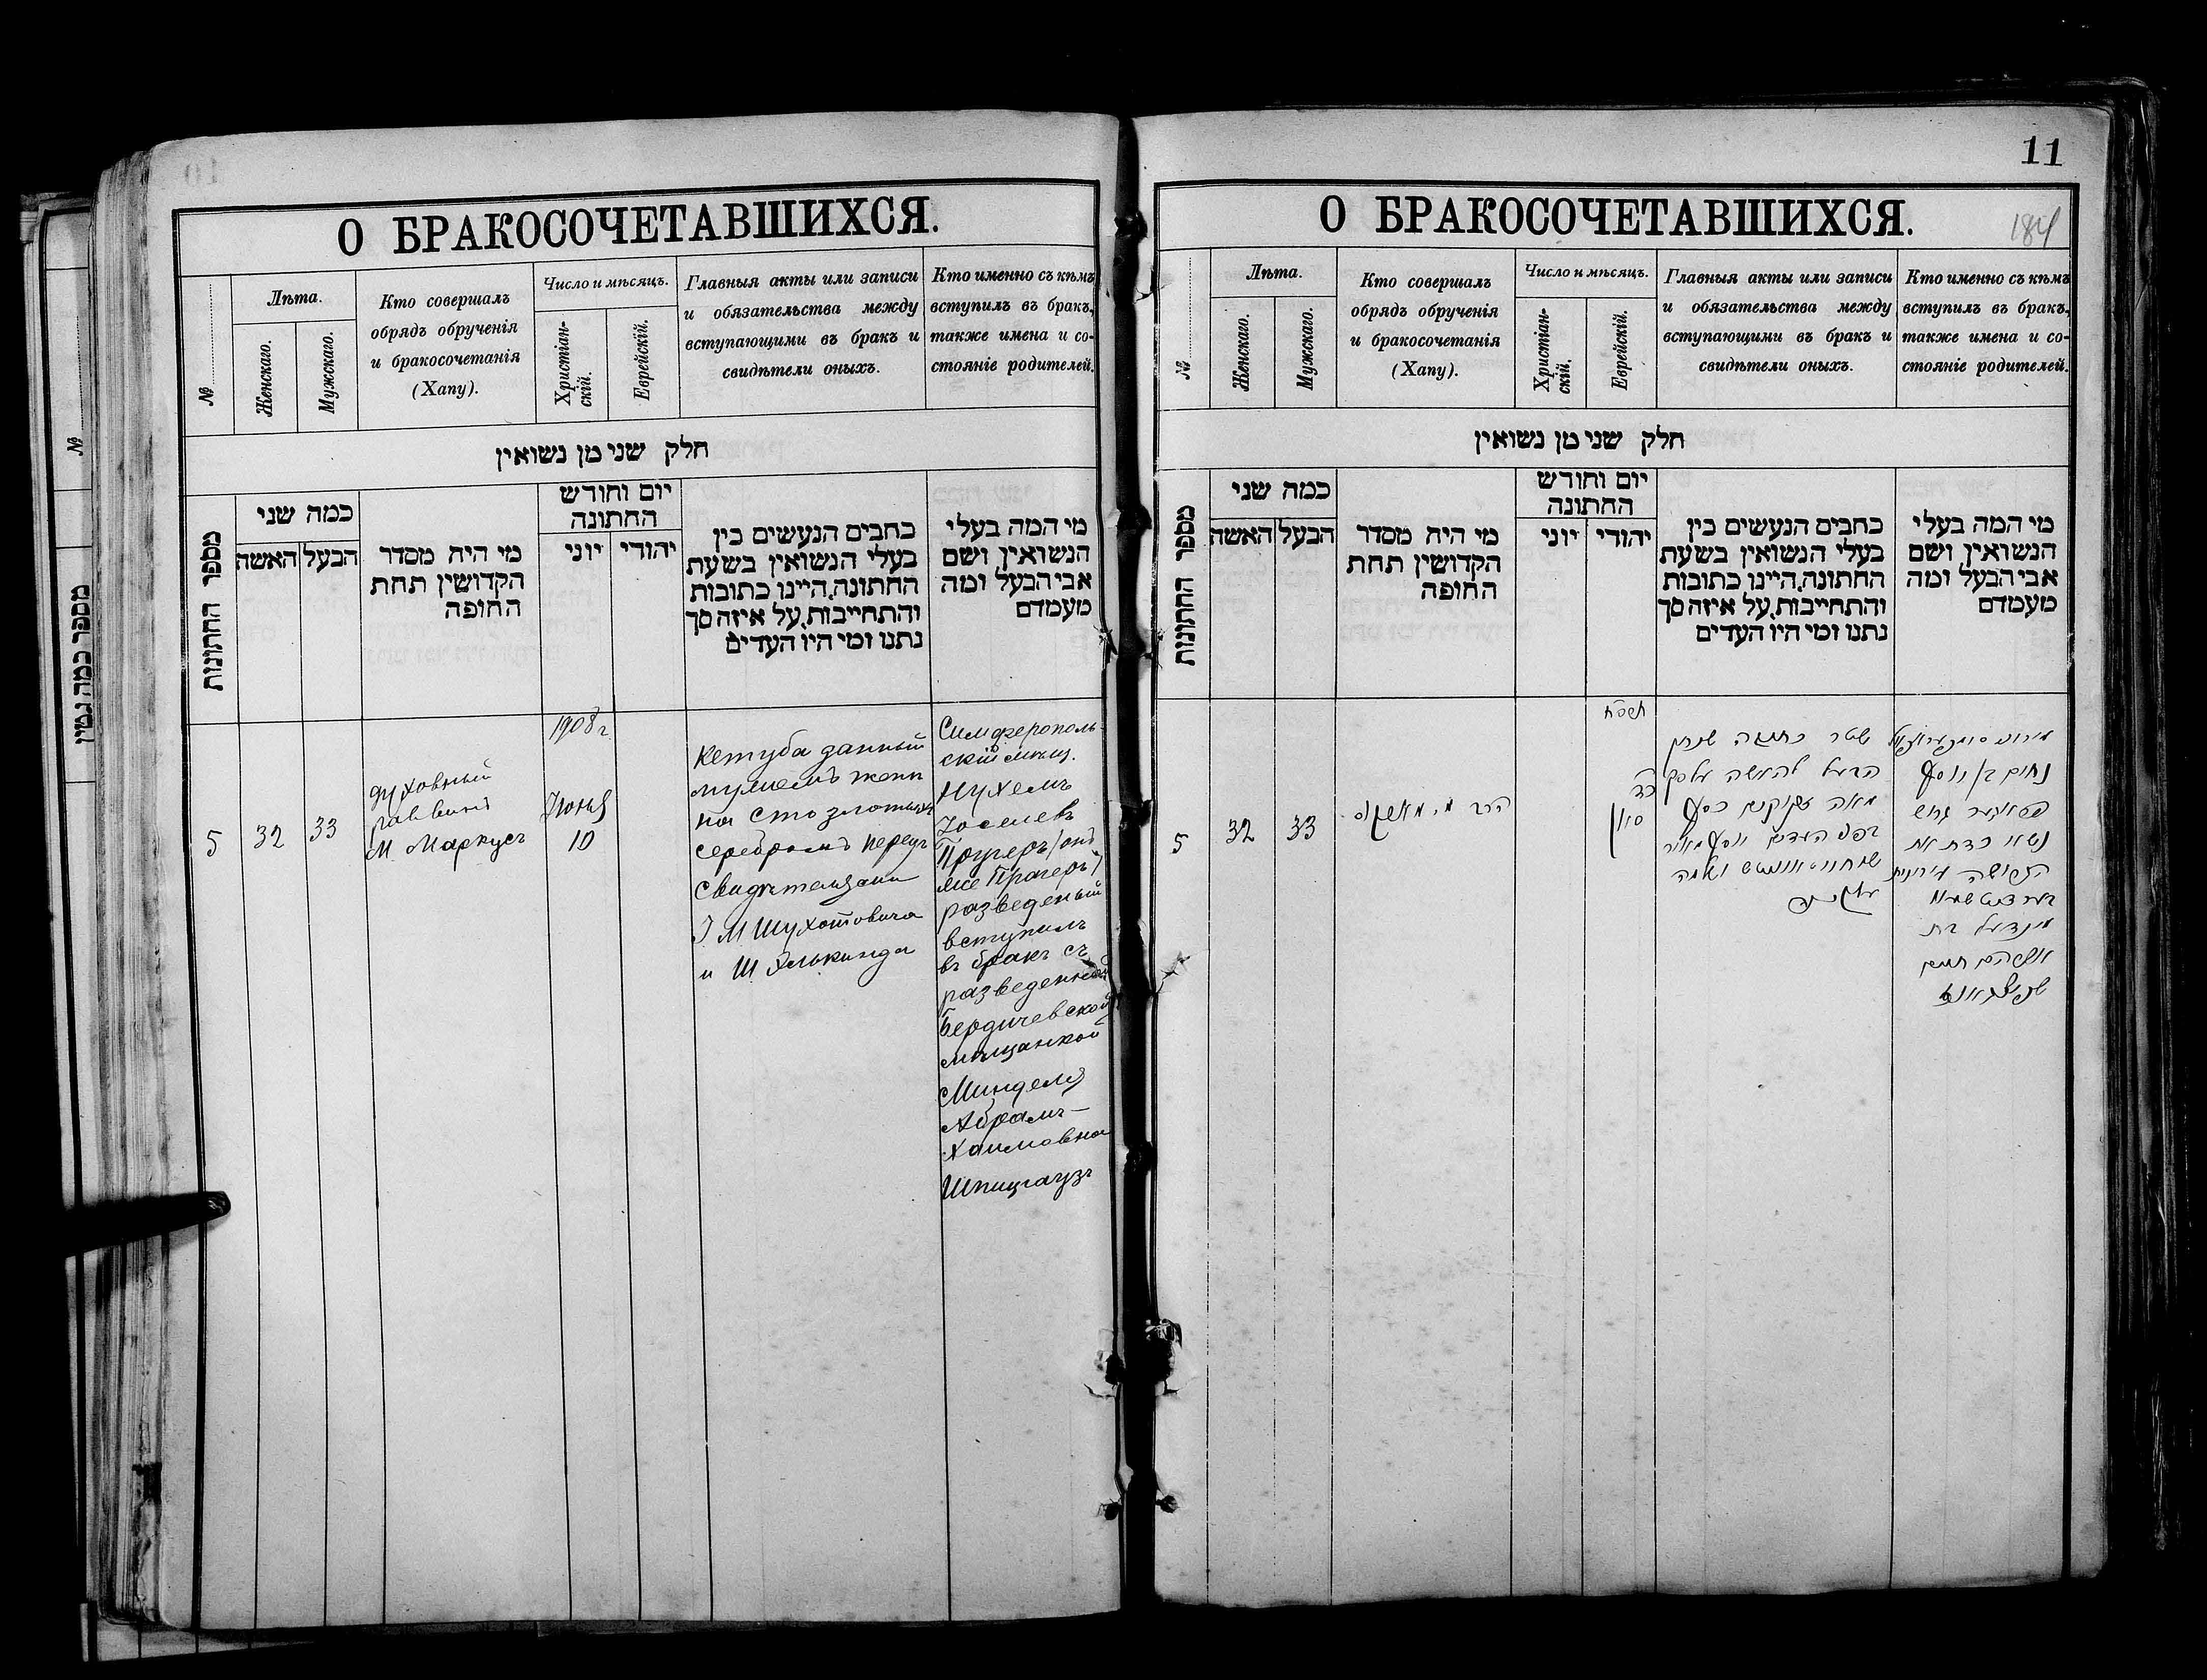 О БРАКОСОЧЕТАВШИХСЯ.
№
Лѣта.
Женскаго.
Мужскаго.
Кто совершалъ
обрядъ обрученія
и бракосочетанія
(Хапу).
Число и мѣсяцъ.
Христіан-
скій.
Еврейскій.
Главныя акты или записи
и обязательства между
вступающими въ бракъ и
свидѣтели оныхъ.
Кто именно съ кѣмъ
вступилъ въ бракъ,
также имена и со-
стояніе родителей.
חלק שני מן נשואין
מספר החתונות
כמה שני
הבעל
האשה
מי היה מסדר
הקדושין תחת
החופה
יום וחודש
החתונה
יהודי
יוני
כחבים הנעשים בין
בעלי הנשואין בשעת
החתונה, היינו כתובות
והתחייבות, על איזה סך
נתנו ומי היו העדים
מי המה בעלי
הנשואין ושם
אבי הבעל ומה
מעמדם
5
32
33
духовный
раввинъ
М. Маркусъ
1908 г
Іюня
10
Кетуба данный
мужемъ жене
на сто злотыхъ
серебромъ передъ
свидѣтелями
І М Шухотовича
и Ш Элькинда
Симферополь-
скій мѣщ.
Нухемъ
Іоселевъ
Прузеръ (онъ
же Прагеръ)
разведеный
вступилъ
въ бракъ съ
разведенной
Бердичевской
мѣщанкой
Миндея
Абрамъ-
Хаимовна
Шпицгаузъ
11
О БРАКОСОЧЕТАВШИХСЯ.
184
№
Лѣта.
Женскаго.
Мужскаго.
Кто совершалъ
обрядъ обрученія
и бракосочетанія
(Хапу).
Число и мѣсяцъ.
Христіан-
скій.
Еврейскій.
Главныя акты или записи
и обязательства между
вступающими въ бракъ и
свидѣтели оныхъ.
Кто именно съ кѣмъ
вступилъ въ бракъ,
также имена и со-
стояніе родителей.
חלק שני מן נשואין
מספר החתונות
כמה שני
הבעל
האשה
מי היה מסדר
הקדושין תחת
החופה
יום וחודש
החתונה
יהודי
יוני
כחבים הנעשים בין
בעלי הנשואין בשעת
החתונה, היינו כתובות
והתחייבות, על איזה סך
נתנו ומי היו העדים
מי המה בעלי
הנשואין ושם
אבי הבעל ומה
מעמדם
5
32
33
הרב מ. מארקוס
תרסח
כד
סיון
שטר כתובה שנתן
הבעל להאשה על סך
מאה זקוקים כסף
בפני העדים יוסף מאיר
נחום בן יוסף
גרוש
נשוי כדת את
הגרושה
מינדעל בת
אברהם חיים